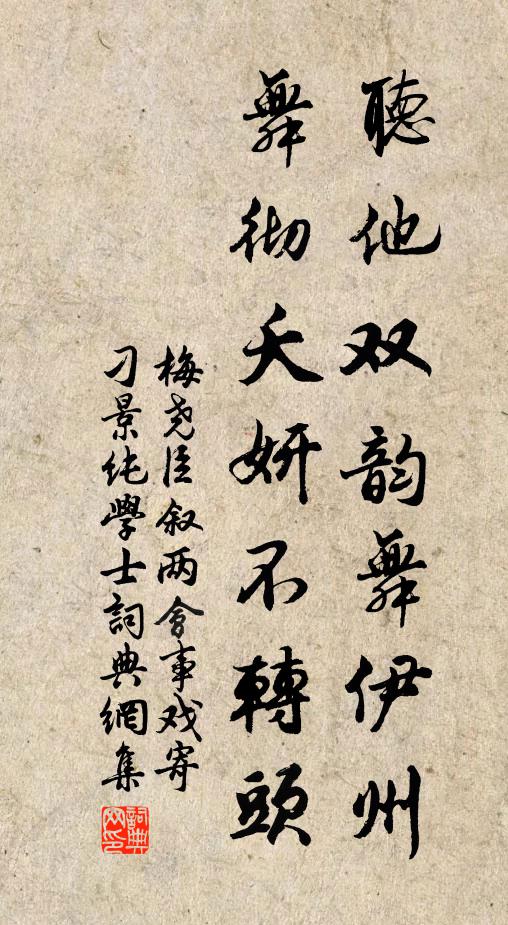 聽他双韵舞伊州
舞彻夭妍不轉頭
梅尧臣叙两會事戏寄
刁景纯學士詞典網集
詞典
网印